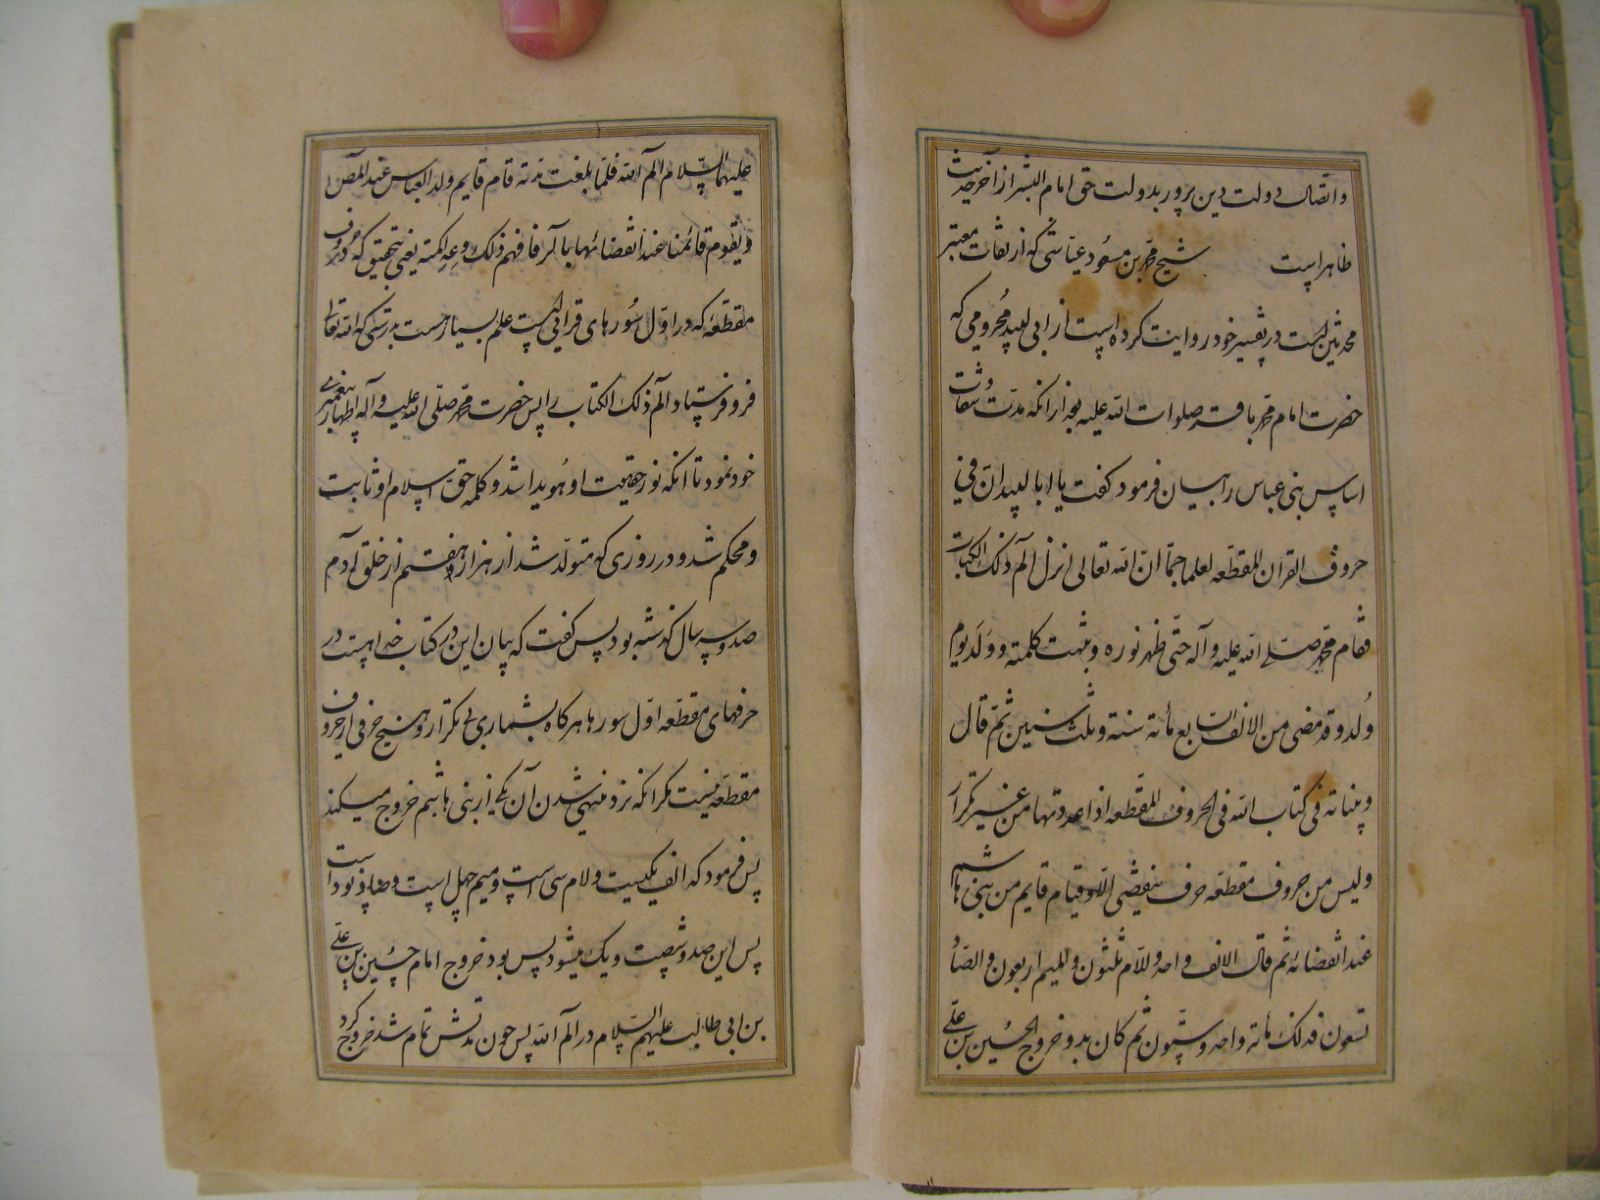 و اتصال دولت دین پرور بدولت حق امام البشر از آخر حدیث
ظاهر است شیخ محمد بن مسعود عیاشی که از ثقات معتبر
محدثین است در تفسیر خود روایت کرده است از ابی لبید مخزومی که
حضرت امام محمد باقر صلوات الله علیه بعد از انکه مدت و شقاوت
اساس بنی عباس را بیان فرمود گفت یا ابا لبید ان فی
حروف القران المقطعه لعلما جما ان الله تعالی انزل الم ذلک الکتاب
فقام محمد صلی الله علیه و آله حتی ظهر نوره و ثبت کلمته و ولد یوم
ولد و قد مضی من الالف السابع مأته سنته و ثلث سنین ثم قال
و بیانه فی کتاب الله فی الحروف المقطعه اذا عددتها من غیر تکرار
و لیس من حروف مقطعه حرف ینقضی الا و قیام قایم من بنی هاشم
عند انقضائه ثم قال الالف واحد و اللام ثلثون و المیم اربعون و الصاد
تسعون فذلک مائه و احد و ستون ثم کان بدو خروج الحسین بن علی
علیهما السلام الم الله فلما بلغت مدته قام قایم ولد العباس عند المص
و یقوم قائمنا عند انقضائها بالر فافهم ذلک وعه اکتمه یعنی بتحقیق که در حروف
مقطعه که در اول سورهای قرانی است علم بسیار هست بدرستی که الله تعالی
فرو فرستاد الم ذلک الکتاب را پس حضرت محمد صلی الله علیه و آله اظهار پیغمبری
خود نمود تا انکه نور حقیقت او هویدا شد و کلمه حق اسلام او ثابت
و محکم شد و در روزی که متولد شد از هزاره هفتم از خلق آدم
صد و سه سال گذشته بود پس گفت که بیان این در کتاب خدا هست در
حرفهای مقطعه اول سورها هرگاه بشماری بی تکرار و هیچ حرفی از حروف
مقطعه نیست مگر انکه نزد منتهی شدن آن یکی از بنی هاشم خروج میکند
پس فرمود که الف یکیست و لام سی است و میم چهل است و صاد نود است
پس این صد و شصت و یک میشود پس بود خروج امام حسین بن علی
بن ابی طالب علیهم السلام در الم الله پس چون مدتش تمام شد خروج کرد